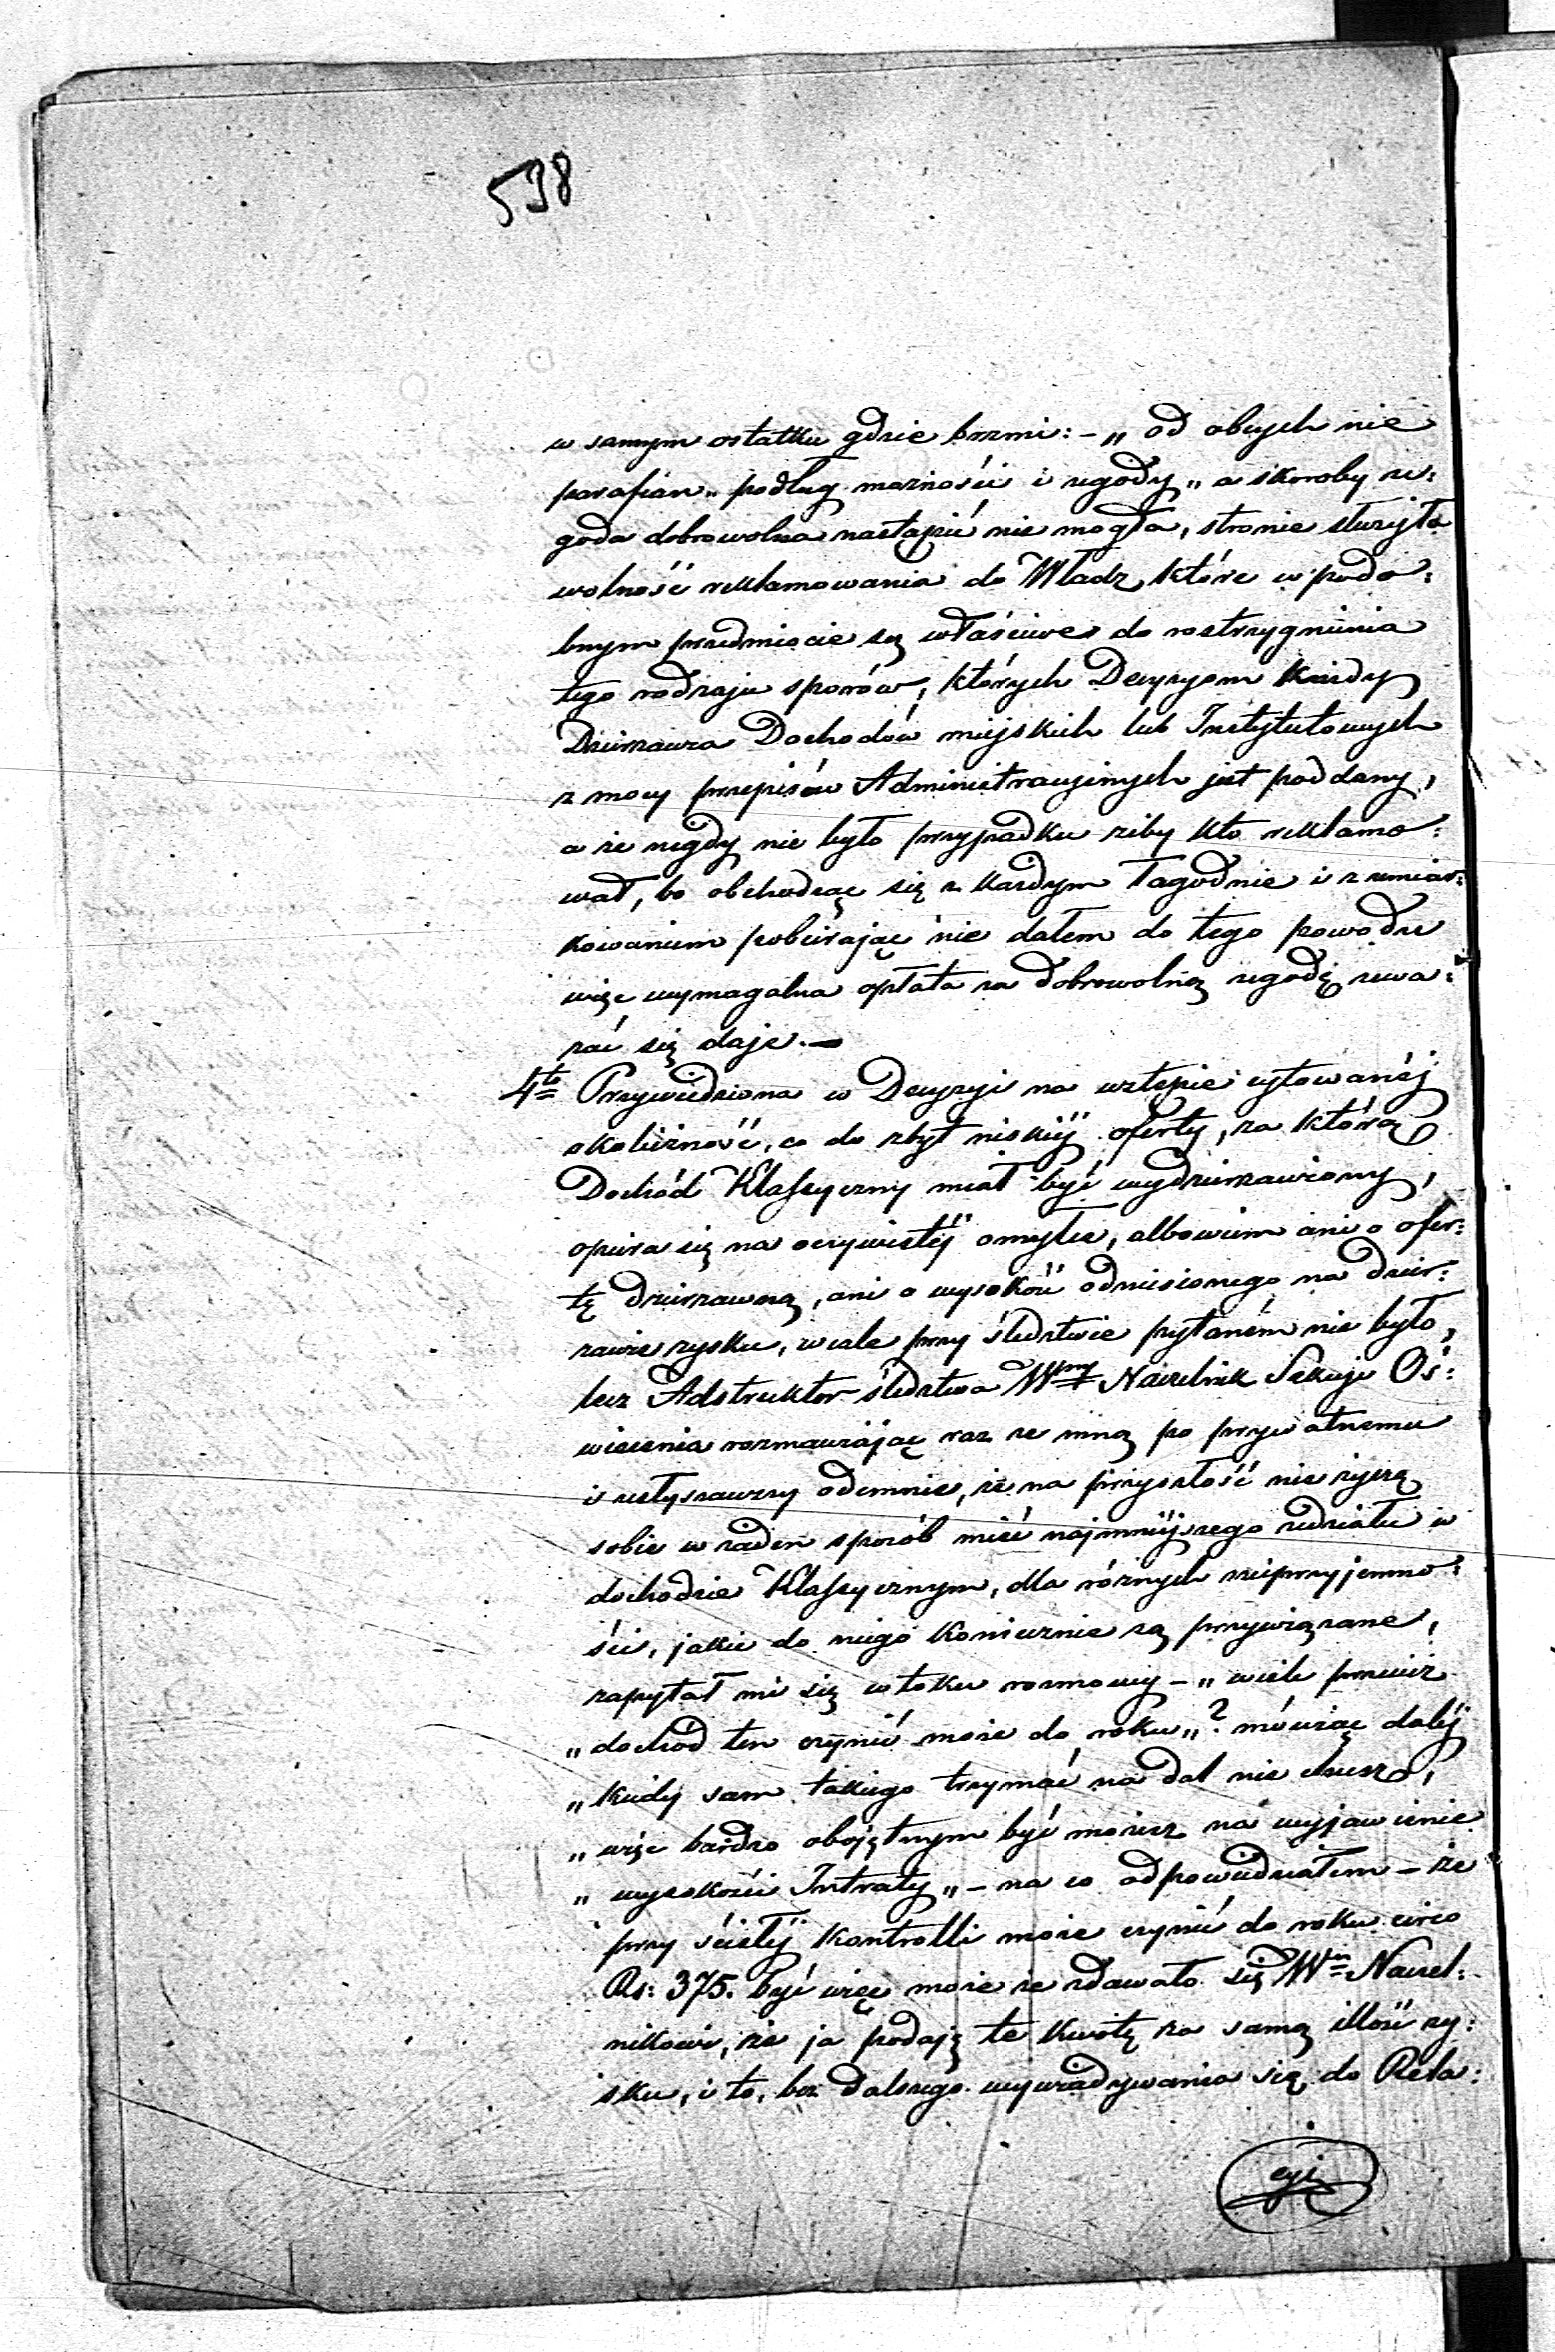 538
w samym ostatku gdzie brzmi: – „od obcych nie
parafian„ podług możności i ugody„ a skoroby u:
goda dobrowolna nastąpić nie mogła, stronie służyła
wolność reklamowania do Władz które w podo:
bnym przedmiocie są właściwe do rostrzygnienia
tego rodzaju sporów, których Decyzyom każdy
Dzierzawca Dochodów miejskich lub Instytutowych
z mocy przepisów Administracyinych jest poddany,
a że nigdy nie było przypadku żeby kto reklamo:
wał, bo obchodząc się z każdym łagodnie i z umiar:
kowaniem pobierając nie dałem do tego powodu
więc wymagalna opłata za dobrowolną ugodę uwa:
żać się daje. –
4to Przywiedziona w Decyzyi na wstępie cytowanéj
okoliczność, co do zbyt niskiéj oferty, za którą
Dochód Klassyczny miał być wydzierzawiony,
opiera się na oczywistéj omyłce, albowiem ani o ofer:
tę dzierzawną, ani o wysokość odniesionego na dzier:
zawie zysku, wcale przy śledztwie pytaném nie było,
lecz Adstruktor śledztwa Wny Naczelnik Sekcyi Oś:
wiecenia rozmawiając raz ze mną po prywatnemu
i usłyszawszy odemnie, że na przyszłość nie życzę
sobie w żaden sposób mieć najmniéjszego udziału w
dochodzie Klassycznym, dla różnych nieprzyjemno:
ści, jakie do niego koniecznie są przywiązane,
zapytał mi się w toku rozmowy – „wiele przecież
„dochód ten czynić może do roku„? mówiąc daléj
„kiedy sam takiego trzymać na dal nie chcesz,
„więc bardzo obojętnym być możesz na wyjawienie
„wysokości Intraty„ – na co odpowiedziałem – że
przy ścisłéj kontrolli może czynić do roku circa
Rs: 375. być więc może że zdawało się Wmu Naczel:
nikowi, że ja podaję te kwotę za samą illość zy:
sku, i to, bez dalszego wywiadywania się do Rela:
cyi